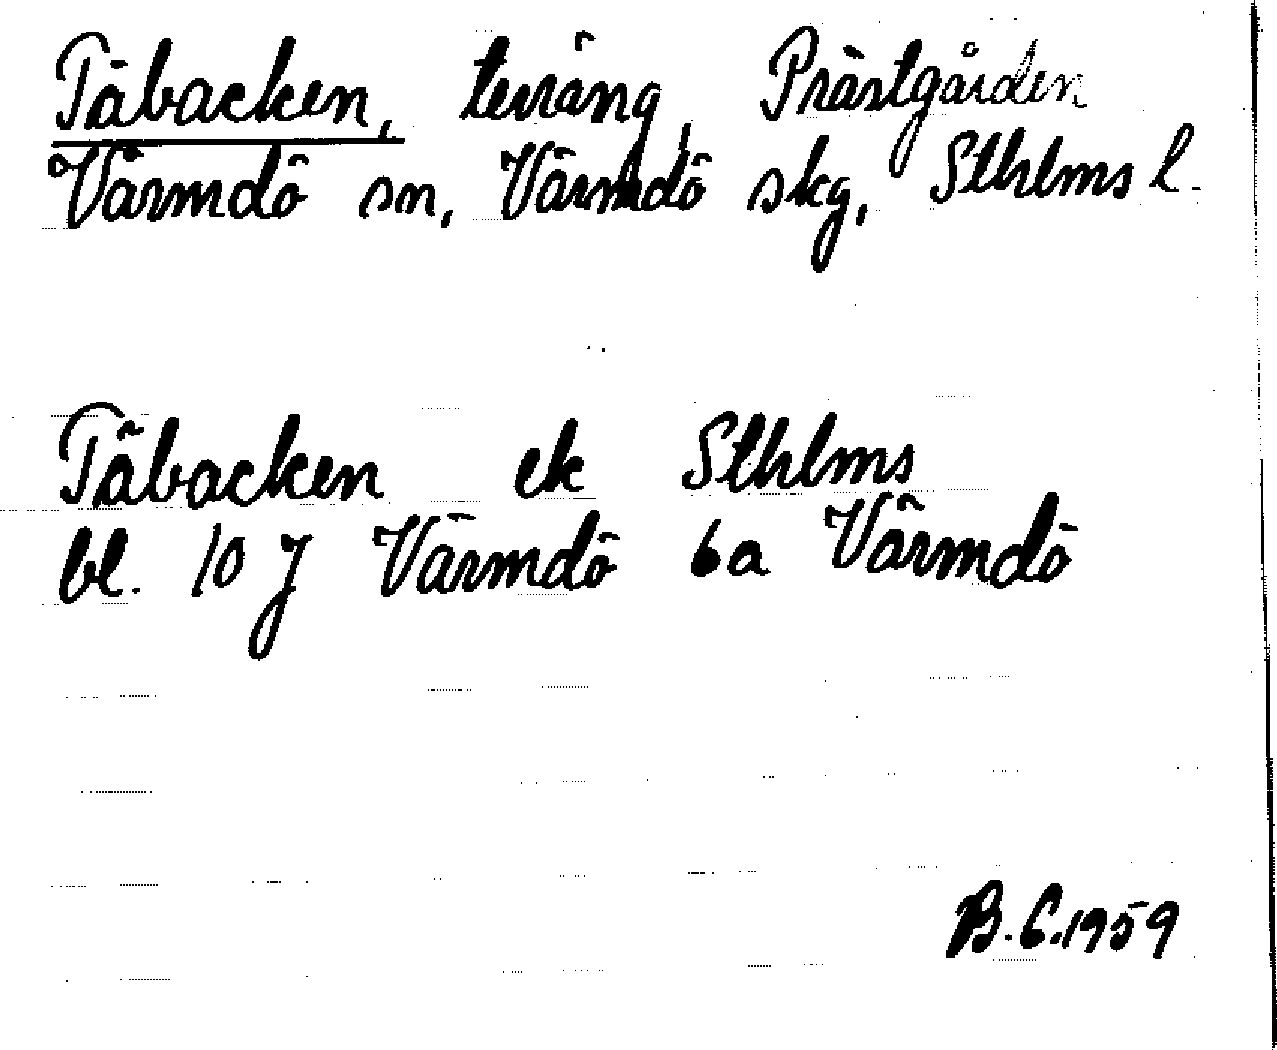 Täbacken, terräng, Prästgården
Värmdö sn, Värmdö skg, Sthlms l.
Täbacken ek Sthlms
bl. 10 J Värmdö 6a Värmdö
B.G.1959